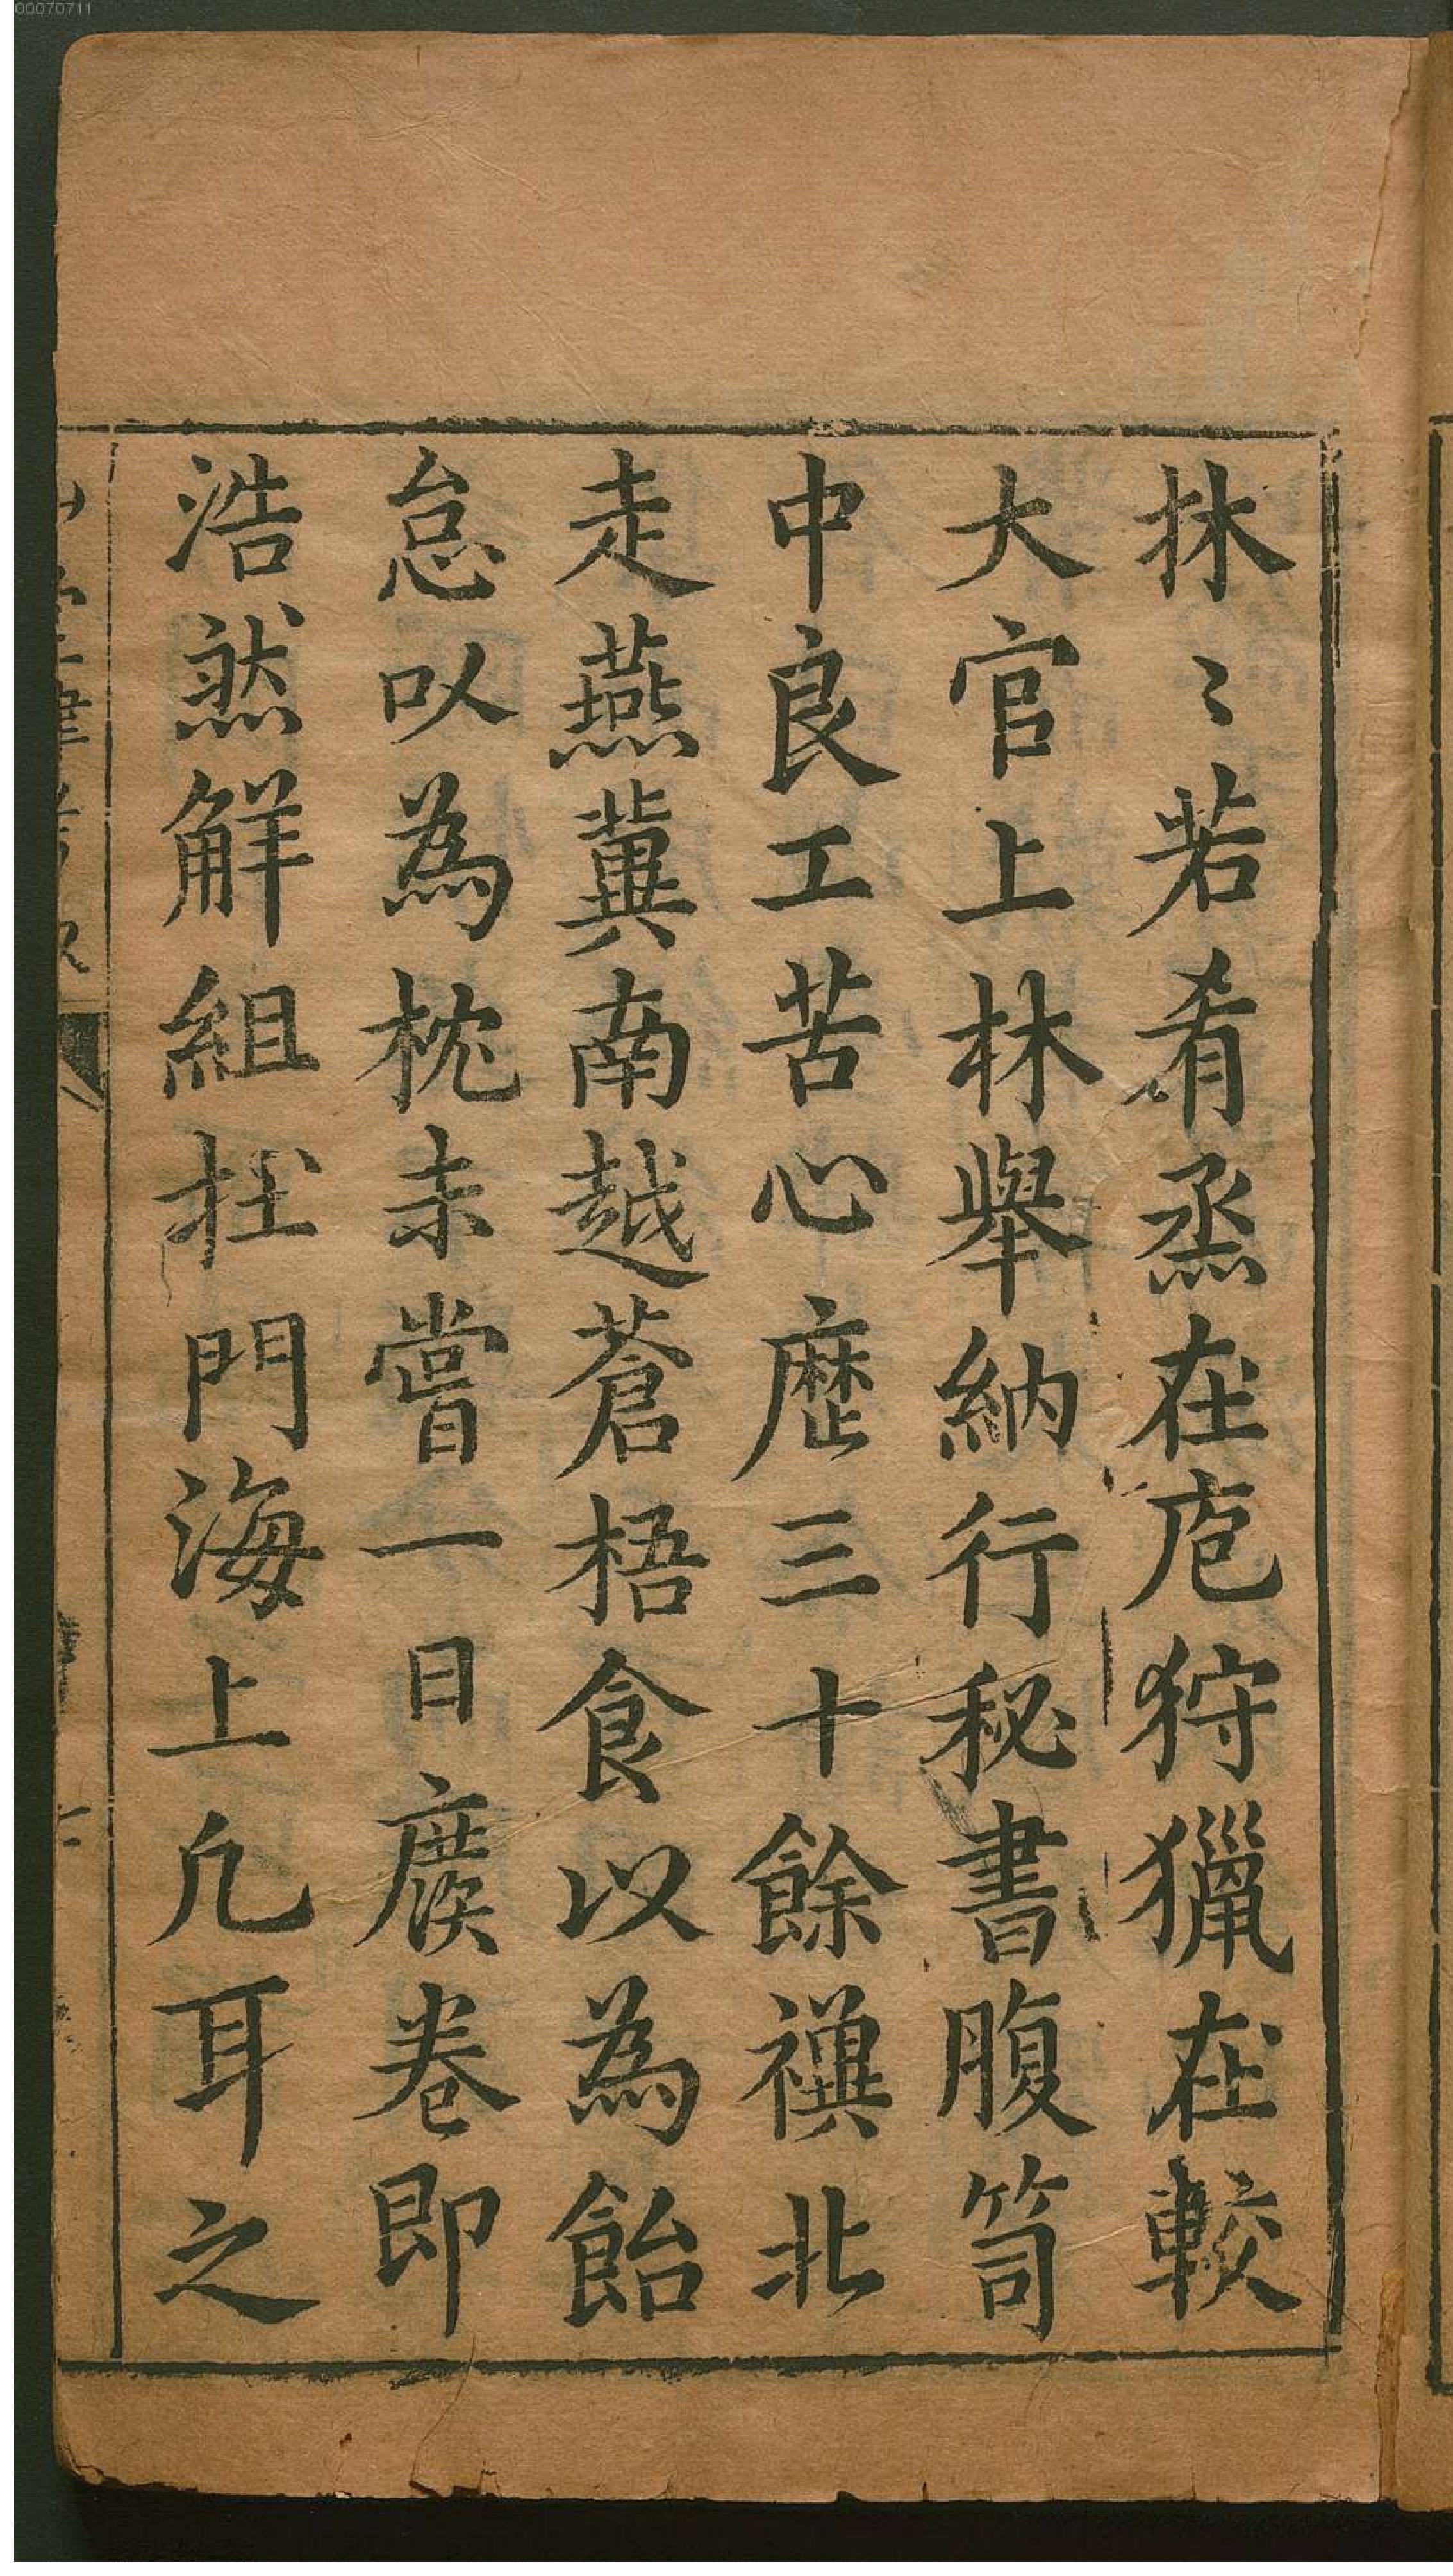 00070711
林〻若肴烝在庖狩獵在較
大官上林舉納行秘書腹笥
中良工苦心歷三十餘禩北
走燕冀南越蒼梧食以為飴
怠以為枕未嘗一日廢卷即
浩然解組杜門海上凢耳之